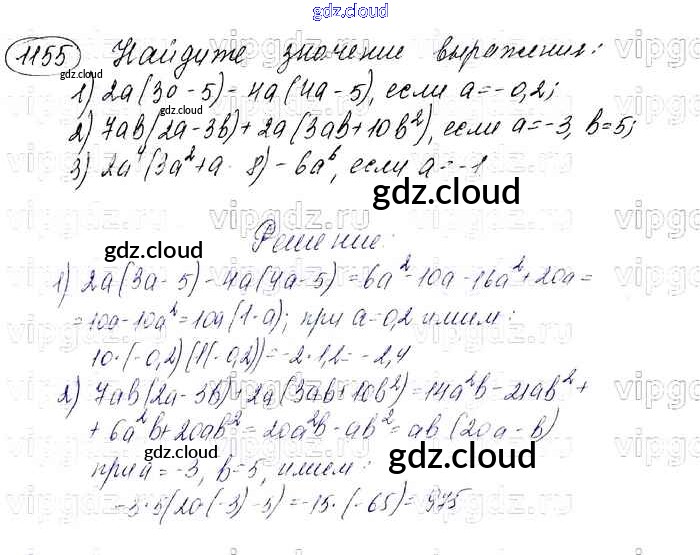 gdz.cloud
1155 Найдите значение выражения:
1) 2a(3a - 5) - 4a(4a - 5), если a = -0,2;
2) 7ab(2a - 3b) + 2a(3ab + 10b²), если a = -3, b = 5;
3) 2a⁴(3a² + a - 8) - 6a⁶, если a = -1
gdz.cloud
Решение:
1) 2a(3a - 5) - 4a(4a - 5) = 6a² - 10a - 16a² + 20a =
= 10a - 10a² = 10a(1 - a); при a = -0,2 имеем:
10·(-0,2)(1-(-0,2)) = -2·1,2 = -2,4
2) 7ab(2a - 3b) + 2a(3ab + 10b²) = 14a²b - 21ab² +
+ 6a²b + 20ab² = 20a²b - ab² = ab(20a - b)
при a = -3, b = 5, имеем:
-3·5(20(-3) - 5) = -15·(-65) = 975
gdz.cloud
vipgdz.ru